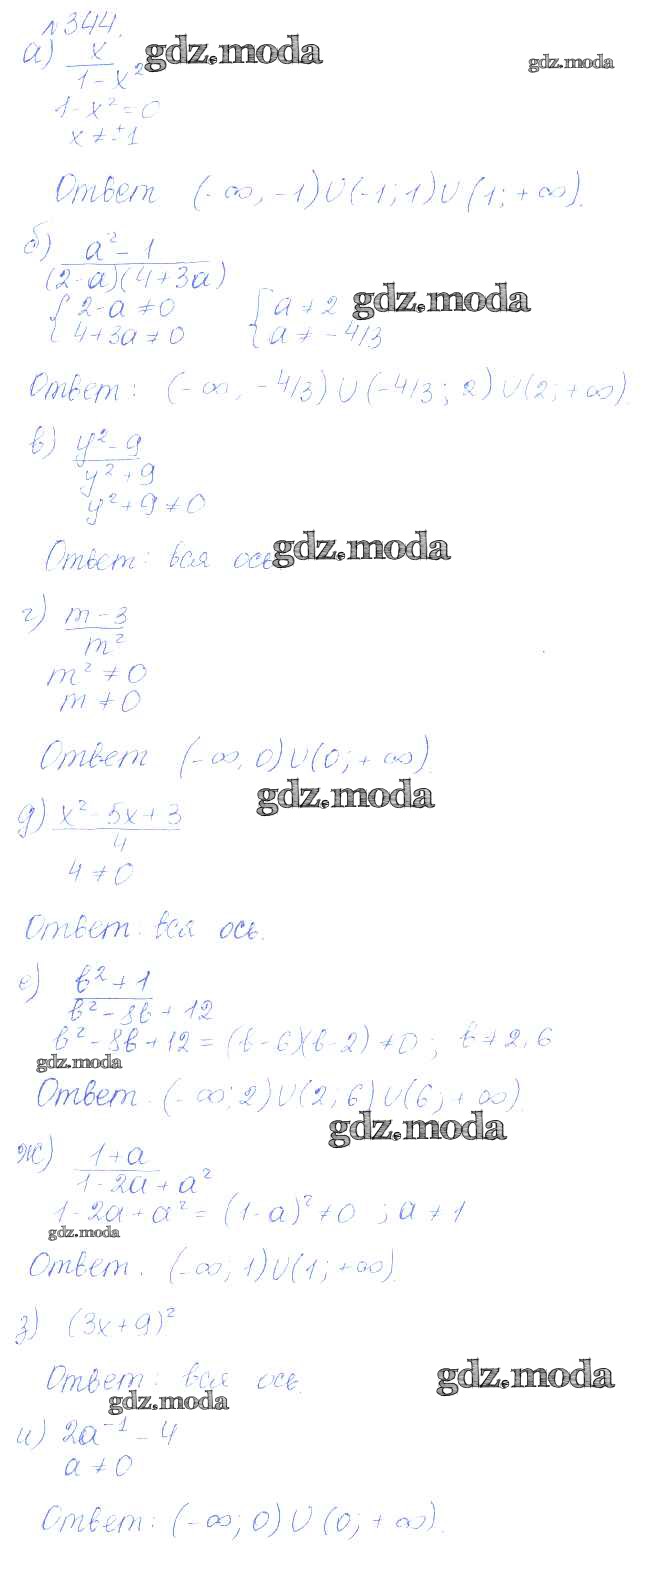 №344.
а) x / (1 - x²) gdz.moda gdz.moda
1 - x² = 0
x ≠ ±1
Ответ (-∞, -1)∪(-1; 1)∪(1; +∞).
б) (a² - 1) / ((2-a)(4+3a))
{ 2-a ≠ 0 { a ≠ 2 gdz.moda
{ 4+3a ≠ 0 { a ≠ -4/3
Ответ: (-∞, -4/3)∪(-4/3; 2)∪(2; +∞).
в) (y² - 9) / (y² + 9)
y² + 9 ≠ 0
Ответ: вся ось gdz.moda
г) (m - 3) / m²
m² ≠ 0
m ≠ 0
Ответ (-∞, 0)∪(0; +∞).
gdz.moda
д) (x² - 5x + 3) / 4
4 ≠ 0
Ответ. вся ось.
е) (b² + 1) / (b² - 8b + 12)
b² - 8b + 12 = (b-6)(b-2) ≠ 0; b ≠ 2, 6
gdz.moda
Ответ. (-∞; 2)∪(2; 6)∪(6; +∞).
gdz.moda
ж) (1+a) / (1 - 2a + a²)
1 - 2a + a² = (1-a)² ≠ 0 ; a ≠ 1
gdz.moda
Ответ. (-∞; 1)∪(1; +∞).
з) (3x+9)²
Ответ: вся ось. gdz.moda
gdz.moda
и) 2a⁻¹ - 4
a ≠ 0
Ответ: (-∞; 0)∪(0; +∞).